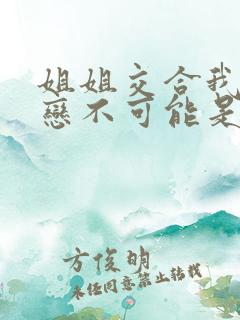 姐姐交合我
戀不可能是
方俊明
未经同意禁止转载